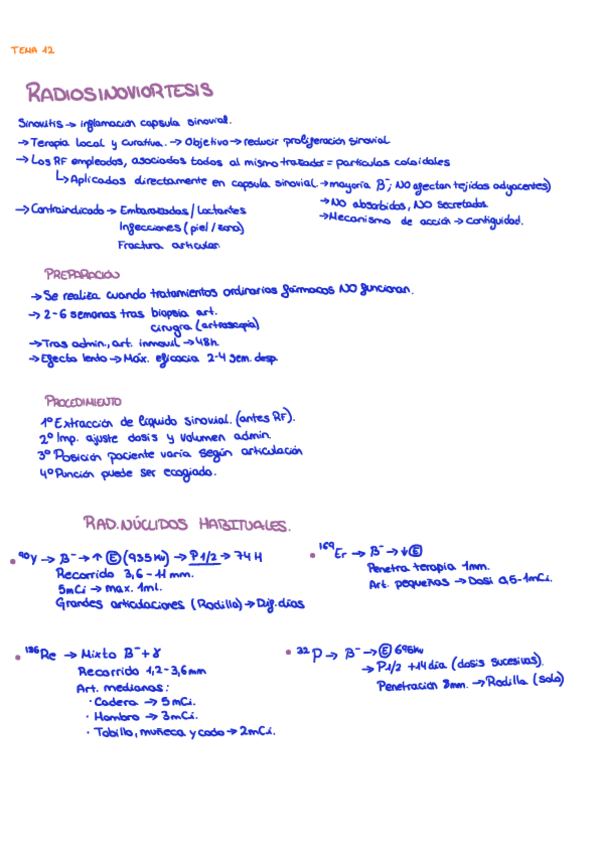 TEMA 12
RADIOSINOVIORTESIS
Sinovitis → inflamación capsula sinovial.
→ Terapia local y curativa. → Objetivo → reducir proliferación sinovial
→ Los RF empleados, asociados todos al mismo trazador = partículas coloidales
↳ Aplicados directamente en capsula sinovial. → mayoría B⁻; NO afectan tejidos adyacentes)
→ NO absorbidos, NO secretados.
→ Mecanismo de acción → contiguidad.
→ Contraindicado → Embarazadas / Lactantes
Inyecciones (piel / zona)
Fractura articular
PREPARACIÓN
→ Se realiza cuando tratamientos ordinarios fármacos NO funcionan.
→ 2-6 semanas tras biopsia art.
cirugía (artroscopia)
→ Tras admin., art. inmovil → 48h.
→ Efecto lento → Máx. eficacia 2-4 sem. desp.
PROCEDIMIENTO
1º Extracción de líquido sinovial. (antes RF).
2º Imp. ajuste dosis y volumen admin.
3º Posición paciente varía según articulación
4º Punción puede ser ecogiado.
RAD. NÚCLIDOS HABITUALES.
• ⁹⁰Y → B⁻ → ↑ Ⓔ (935 Kv) → P 1/2 → 74 H
Recorrido 3,6 - 11 mm.
5mCi → max. 1ml.
Grandes articulaciones (Rodilla) → Duj. días
• ¹⁶⁹Er → B⁻ → ↓ Ⓔ
Penetra terapia 1mm.
Art. pequeñas → Dosi 0,5-1mCi.
• ¹⁸⁶Re → Mixto B⁻ + γ
Recorrido 1,2-3,6mm
Art. medianas:
· Cadera → 5 mCi.
· Hombro → 3mCi.
· Tobillo, muñeca y codo → 2mCi.
• ³²P → B⁻ → Ⓔ 695Kv
→ P1/2 +14 día (dosis sucesivas).
Penetración 8mm. → Rodilla (solo)